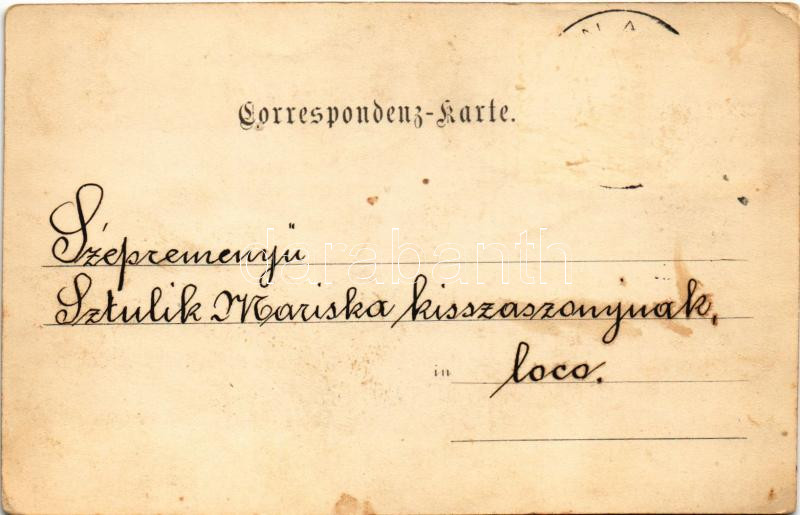 N A
Correspondenz-Karte.
Szépremenyü
Sztulik Mariska kisszaszonynak,
in loco.
darabanth